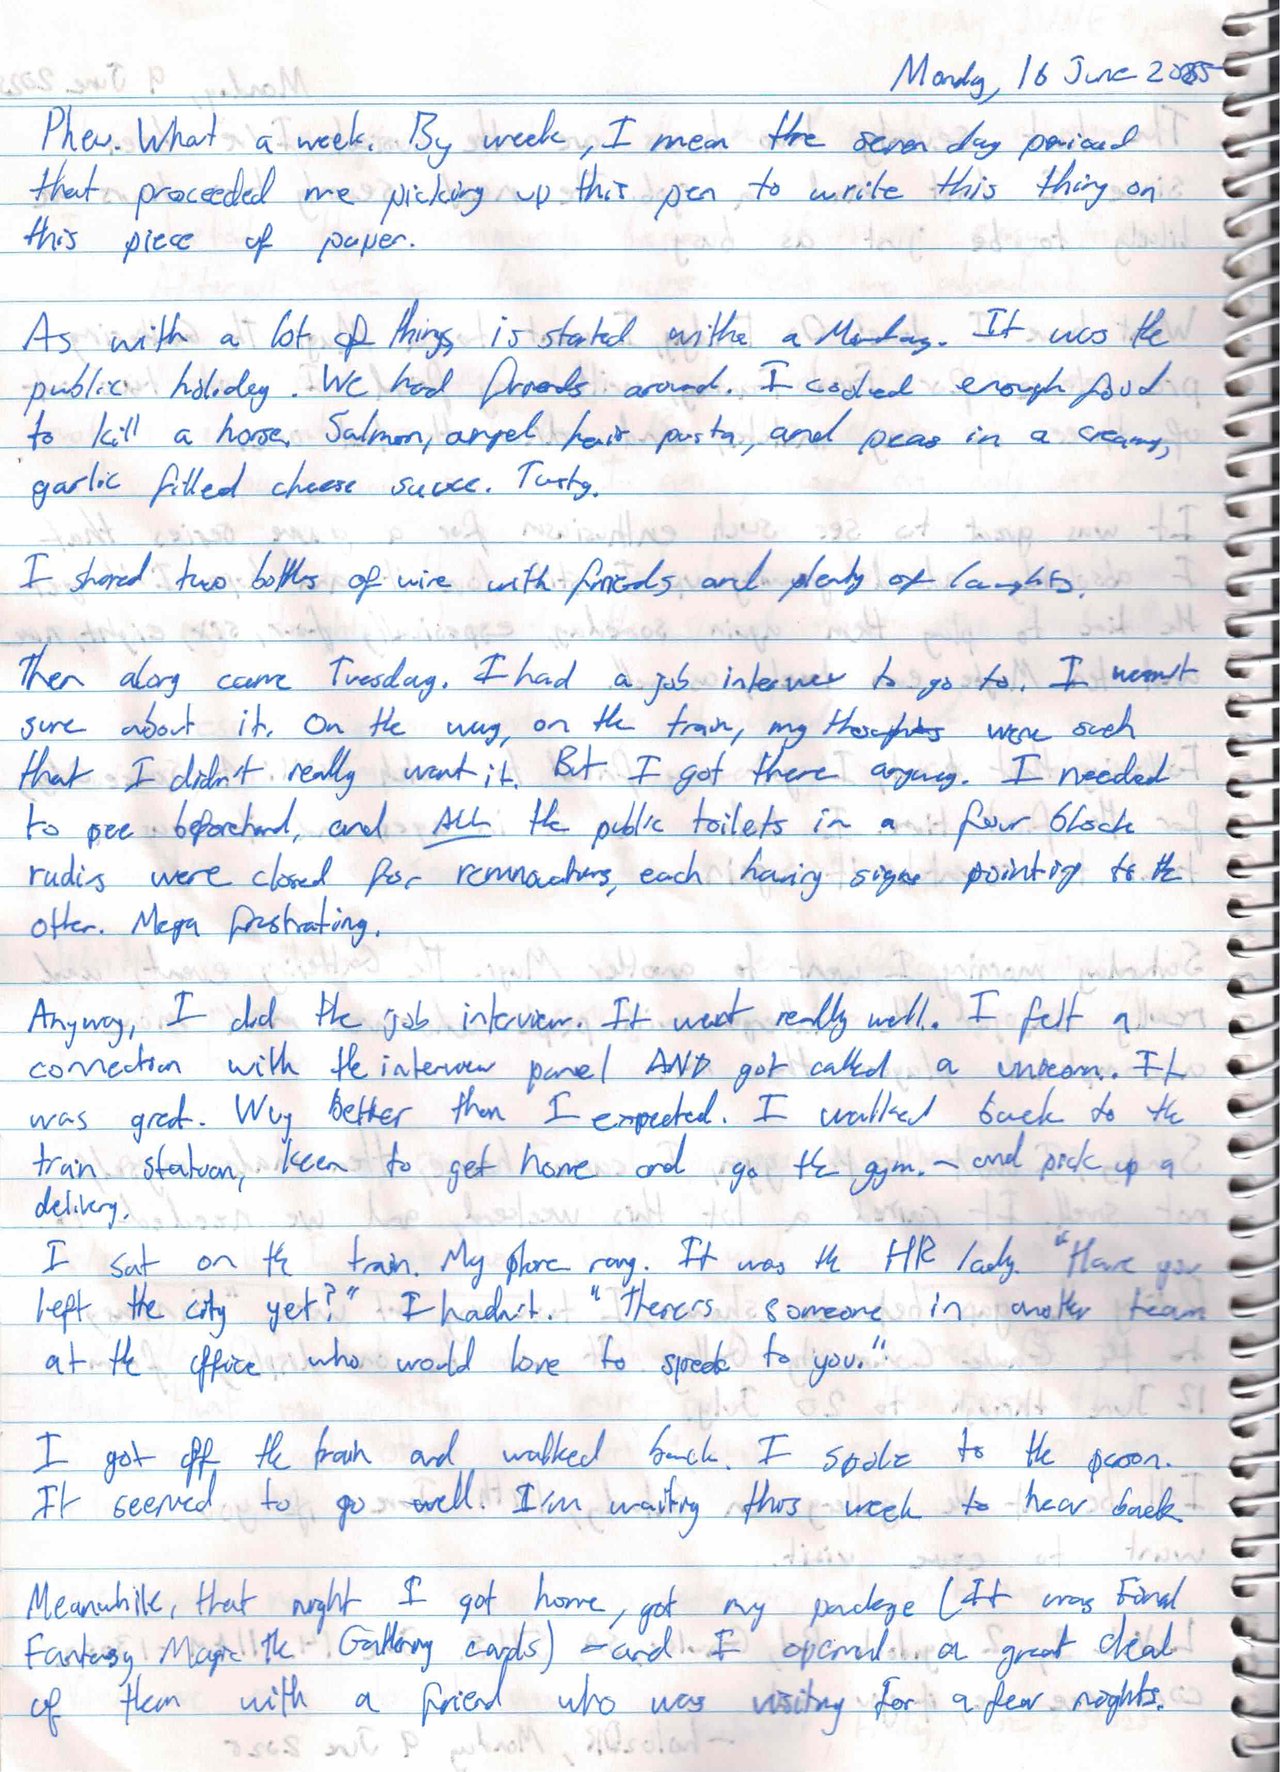 Monday, 16 June 2025
Phew. What a week. By week, I mean the seven day period
that proceeded me picking up this pen to write this thing on
this piece of paper.
As with a lot of things, is started withe a Monday. It was the
public holiday. We had friends around. I cooked enough food
to kill a horse. Salmon, angel hair pasta, and peas in a creamy,
garlic filled cheese sauce. Tasty.
I shared two bottles of wine with friends, and plenty of laughts.
Then along came Tuesday. I had a job interview to go to. I wasn't
sure about it. On the way, on the train, my thoughts were such
that I didn't really want it. But I got there anyway. I needed
to pee beforehand, and ALL the public toilets in a four block
radius were closed for rennovations, each having signs pointing to the
other. Mega frustrating.
Anyway, I did the job interview. It went really well. I felt a
connection with the interview panel AND got called a unicorn. It
was great. Way better than I expected. I walked back to the
train station, keen to get home and go the gym. - and pick up a
delivery.
I sat on the train. My phone rang. It was the HR lady. "Have you
left the city yet?" I hadn't. "There's someone in another team
at the office who would love to speak to you."
I got off the train and walked back. I spoke to the person.
It seemed to go well. I'm waiting this week to hear back
Meanwhile, that night I got home, got my package (It was Final
Fantasy Magic the Gathering cards) - and I opened a great deal
of them with a friend who was visiting for a few nights.